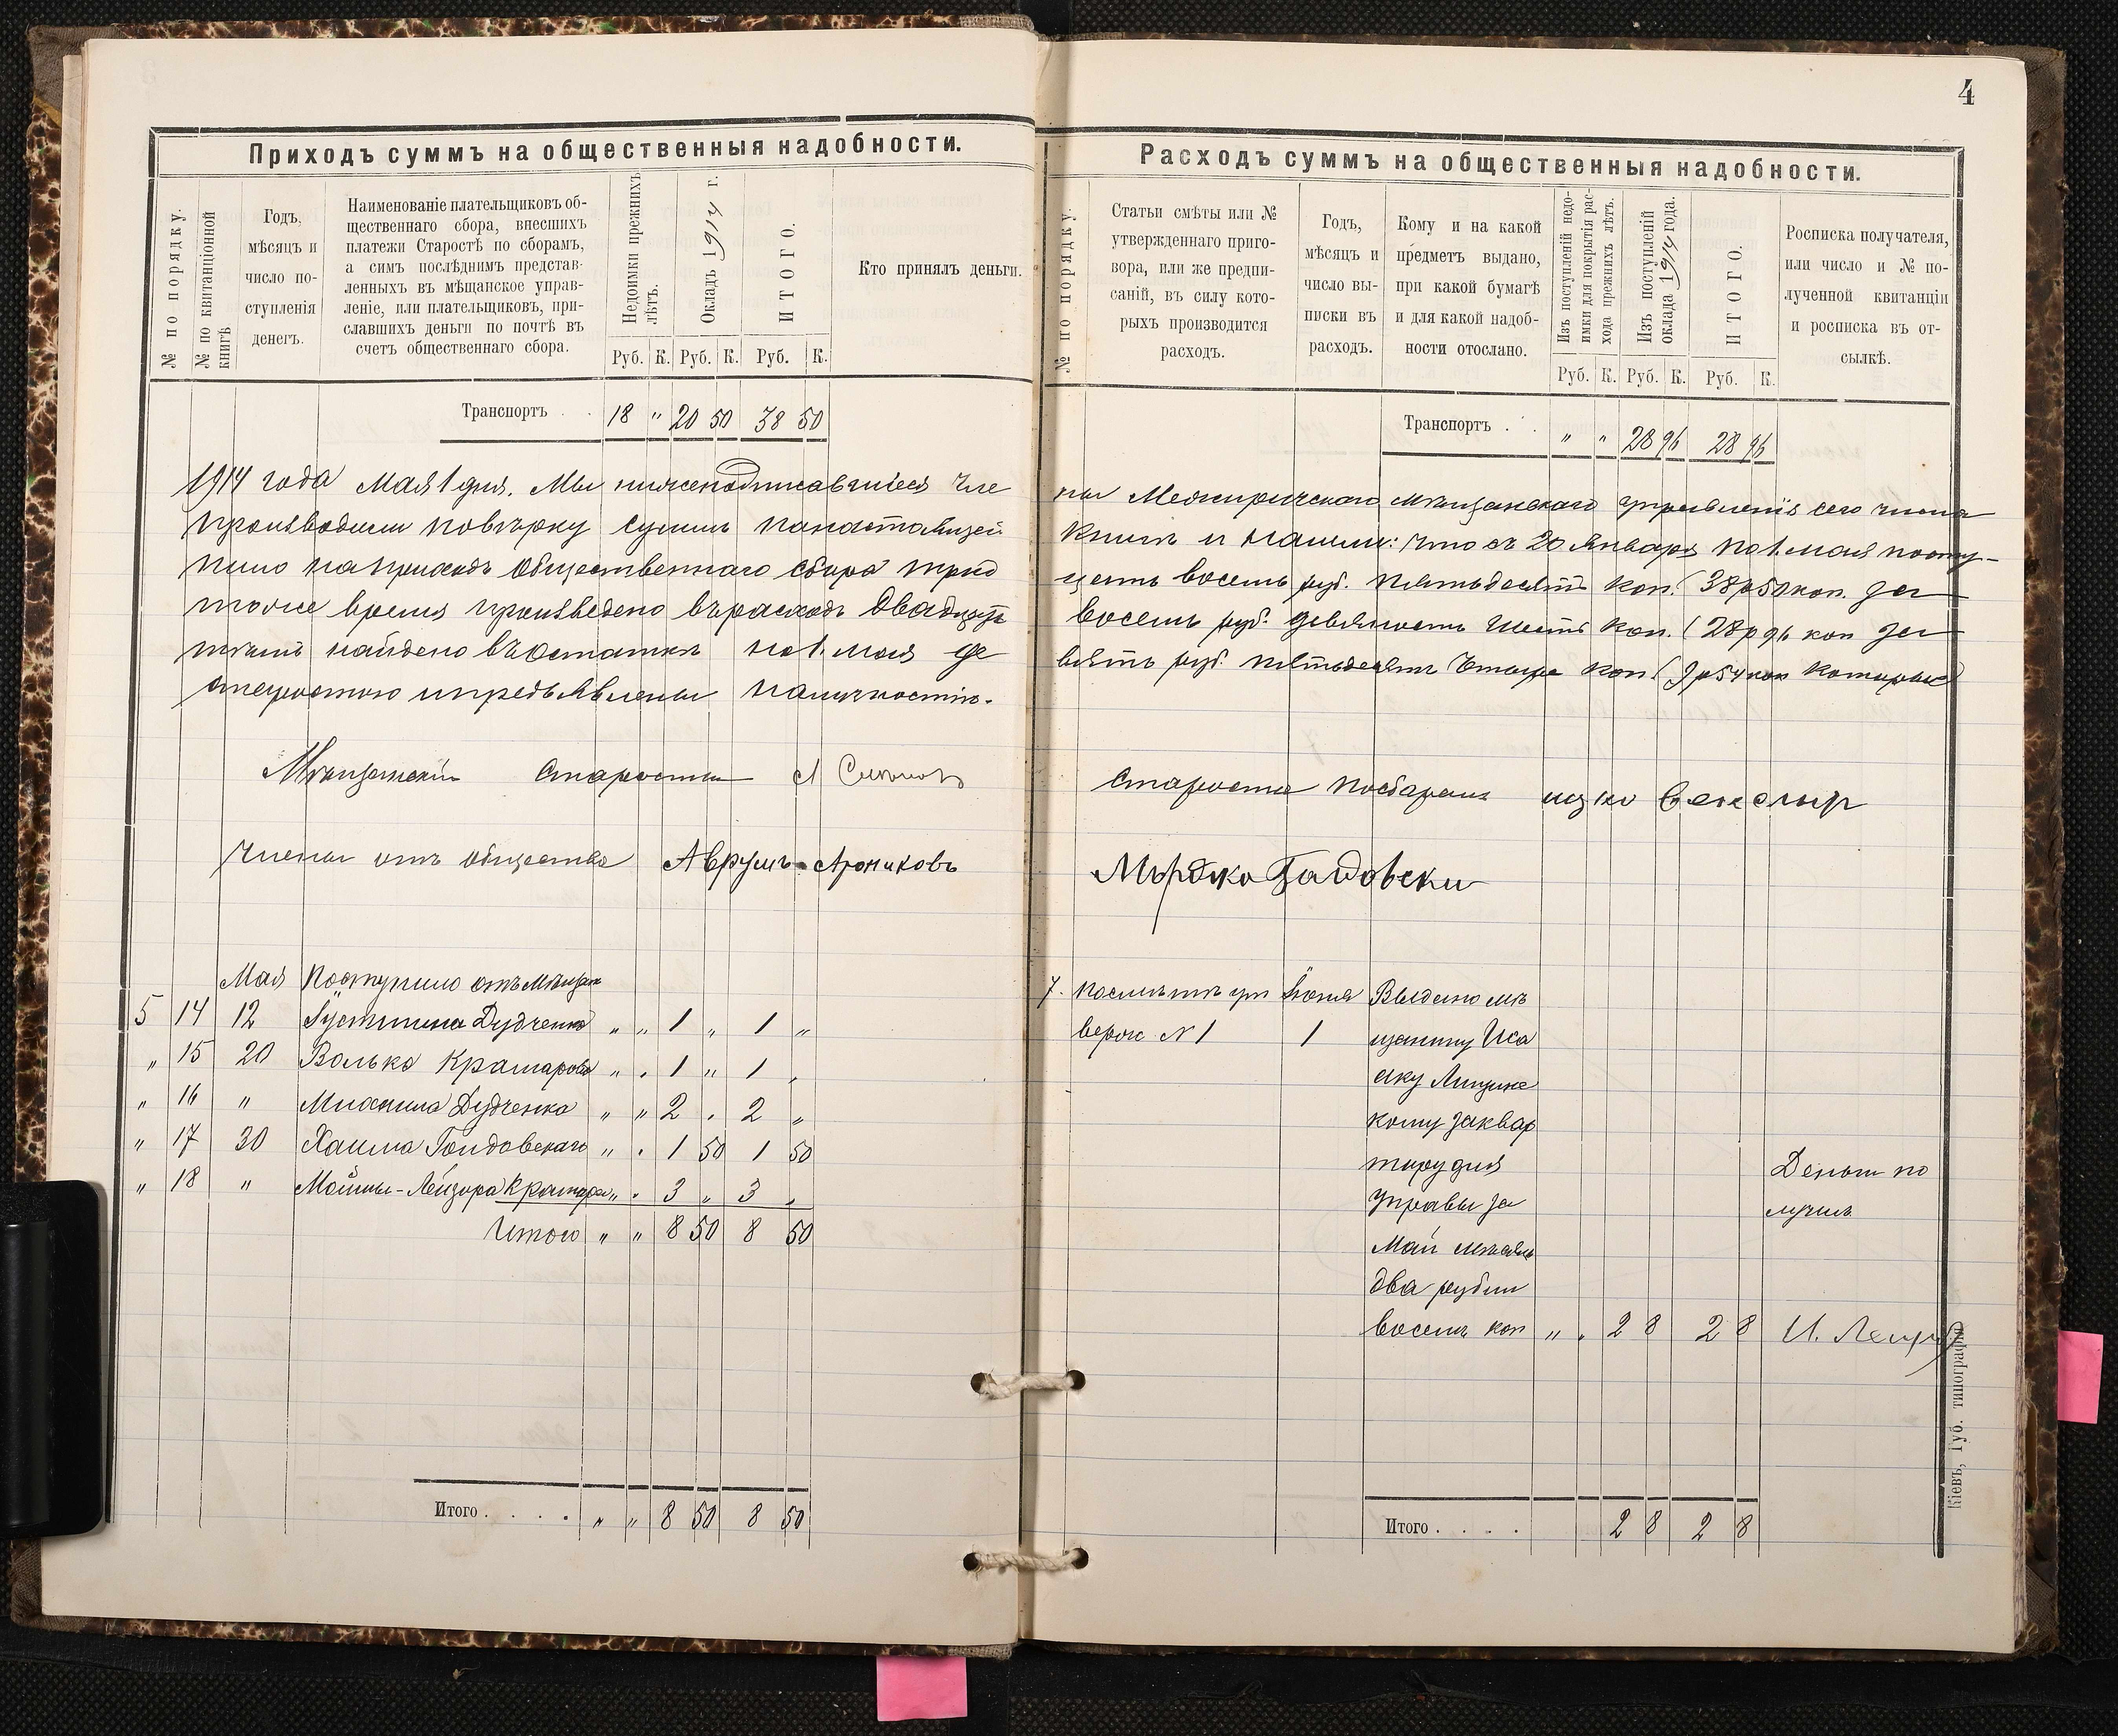 4
Приходъ суммъ на общественныя надобности.
№ по порядку.
№ по квитанціонной книгѣ
Годъ,
мѣсяцъ и
число по-
ступленія
денегъ.
Наименованіе плательщиковъ об-
щественнаго сбора, внесшихъ
платежи Старостѣ по сборамъ,
а симъ послѣднимъ представ-
ленныхъ въ мѣщанское управ-
леніе, или плательщиковъ, при-
славшихъ деньги по почтѣ въ
счетъ общественнаго сбора.
Недоимки прежнихъ
лѣтъ.
Окладъ 1914 г.
ИТОГО.
Руб. К. Руб. К. Руб. К.
Кто принялъ деньги.
Транспортъ . . 18 " 20 50 38 50
1914 года Мая 1 дня. Мы нижеподписавшіеся Чле
производили повѣрку суммъ понастоящей
пило наприходъ Общественнаго сбора трид
тоже время произведено върасходъ Двадцать
тѣмъ найдено въостаткѣ на 1. мая де
старостою ипредъявлены наличностію.
Мѣщанскій Староста
Члены отъ Общества Аврумъ Арониковъ
Мая Поступило отъ Мѣщан
5 14 12 Густина Дудченко " " 1 " 1 "
" 15 20 Волько Крамарова " " 1 " 1 "
" 16 " Михаила Дудченка " " 2 " 2 "
" 17 30 Хаима Гондовскаго " " 1 50 1 50
" 18 " Мошки-Лейзора Крамара " " 3 " 3 "
Итого " " 8 50 8 50
Итого . . . . " " 8 50 8 50
Расходъ суммъ на общественныя надобности.
№ по порядку.
Статьи смѣты или №
утвержденнаго приго-
вора, или же предпи-
саній, въ силу кото-
рыхъ производится
расходъ.
Годъ,
мѣсяцъ и
число вы-
писки въ
расходъ.
Кому и на какой
предметъ выдано,
при какой бумагѣ
и для какой надоб-
ности отослано.
Изъ поступленій недо-
имки для покрытія рас-
хода прежнихъ лѣтъ.
Изъ поступленій
оклада 1914 года.
ИТОГО.
Руб. К. Руб. К. Руб. К.
Росписка получателя,
или число и № по-
лученной квитанціи
и росписка въ от-
сылкѣ.
Транспортъ . . " " 28 96 28 96
ны Межиричскаго мѣщанскаго управленія сего числа
Книгѣ и Нашли: что съ 20 Января по 1. мая посту-
цать восемь руб. пятьдесятъ коп. (38р 50коп. за
восемь руб. девяносто шесть коп. (28р 96 коп за
вять руб. пятьдесятъ Четыре коп (9р54коп которые
Староста посборамъ
Мордко
7. посмѣтѣ ут Іюня Выдано мѣ
верж № 1 1 щанину Иса
аку
кому заквар
тиру для
Управы за
Май мѣсяцъ
два рубли
восемь коп " " 2 8 2 8
Деньги по
лучилъ
Итого . . . . 2 8 2 8
Кіевъ, Губ. типографія